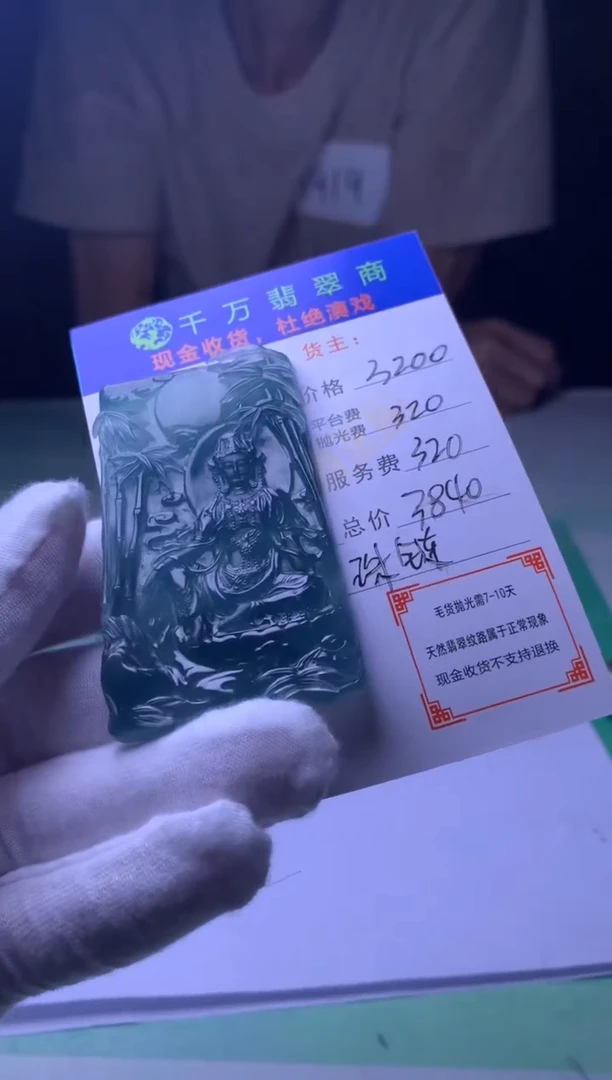 千万翡翠商
现金收货，杜绝演戏
货主：
价格 3200
平台费
抛光费 320
服务费 320
总价 3840
毛货抛光需7-10天
天然翡翠纹路属于正常现象
现金收货不支持退换